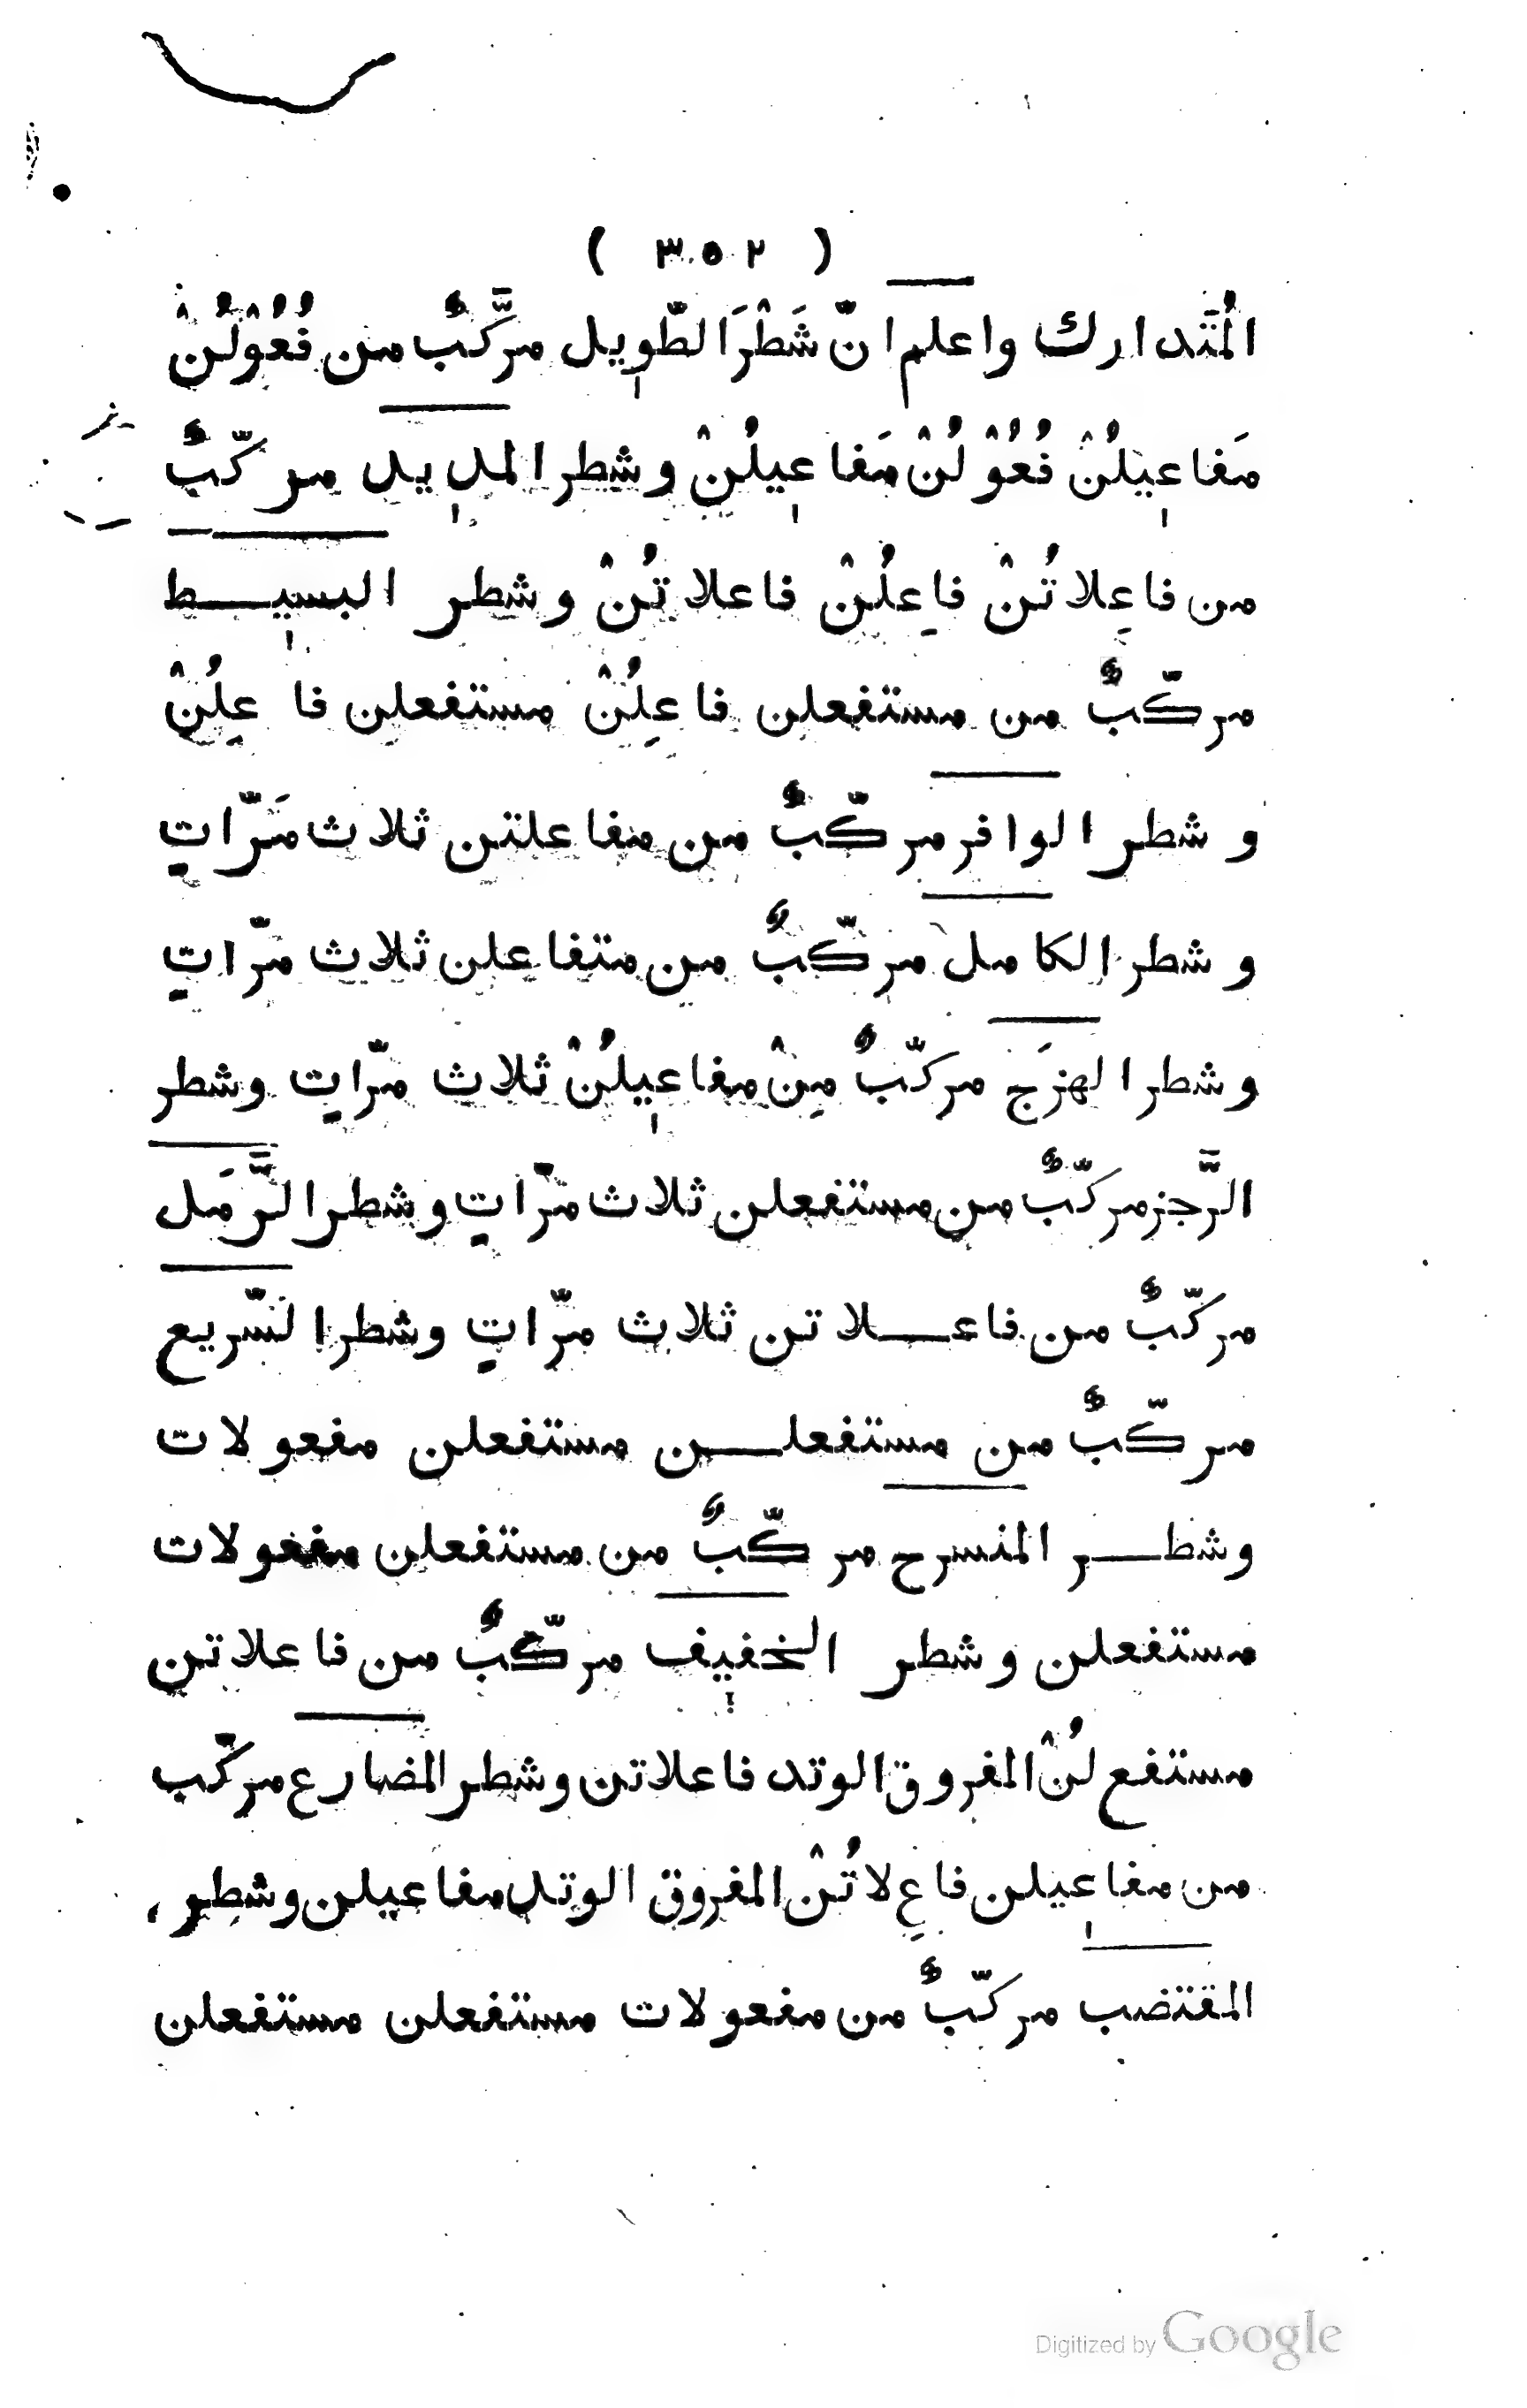 ( ٣٥٢ )
المُتَدارك واعلم انّ شَطْرَ الطّوِيل مرَّكّبٌ من فُعُوْلُنْ
مَفاعِيلُنْ فُعُوْلُنْ مَفاعِيلُنْ وشطر المدِيد مركّبٌ
من فاعِلاتُنْ فاعِلُنْ فاعلاتُنْ وشطر البسِيـط
مركّبٌ من مستفعلن فاعِلُنْ مستفعلن فاعِلُنْ
وشطر الوافر مركّبٌ من مفاعلتن ثلاث مَرّاتٍ
وشطر الكامل مركّبٌ من متفاعلن ثلاث مرّاتٍ
وشطر الهزَج مركّبٌ مِنْ مفاعِيلُنْ ثلاث مرّاتٍ وشطر
الرَّجز مركّبٌ من مستفعلن ثلاث مرّاتٍ وشطر الرَّمَل
مركّبٌ من فاعـلاتن ثلاث مرّاتٍ وشطر السّريع
مركّبٌ من مستفعلـن مستفعلن مفعولات
وشطـر المنسرح مركّبٌ من مستفعلن مفعولات
مستفعلن وشطر الخفيف مركّبٌ من فاعلاتن
مستفع لُنْ المفروق الوتد فاعلاتن وشطر المضارع مركّب
من مفاعيلن فاعِ لاتُنْ المفروق الوتد مفاعيلن وشطر
المقتضب مركّبٌ من مفعولات مستفعلن مستفعلن
Digitized by Google